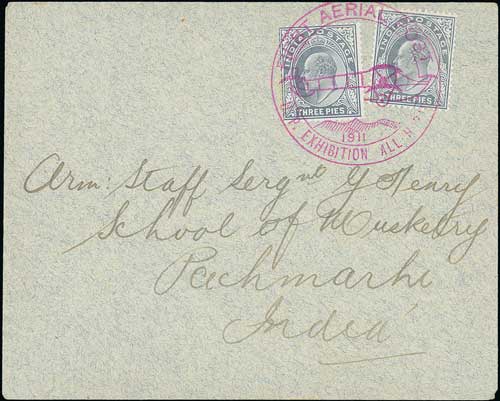 FIRST AERIAL POST
U.P. EXHIBITION ALLAHABAD
1911
INDIA POSTAGE
THREE PIES
INDIA POSTAGE
THREE PIES
Arm: Staff Sergnt G Henry
School of Muskerry
Pachmarhi
India